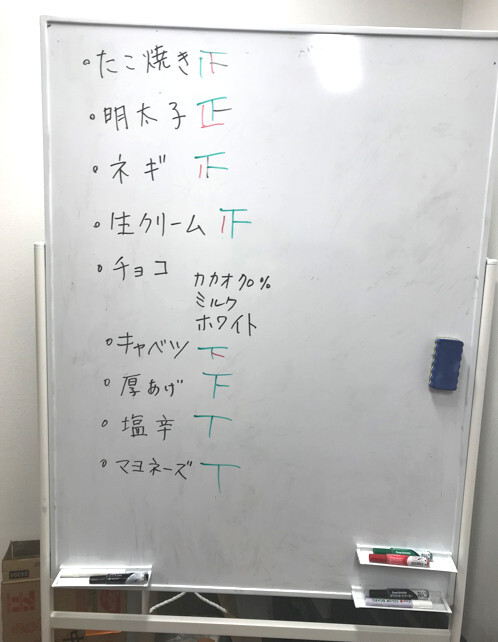 ・たこ焼き 𝍵
・明太子 正
・ネギ 𝍵
・生クリーム 𝍵
・チョコ
カカオ70%
ミルク
ホワイト
・キャベツ 下
・厚あげ 下
・塩辛 丅
・マヨネーズ 丅